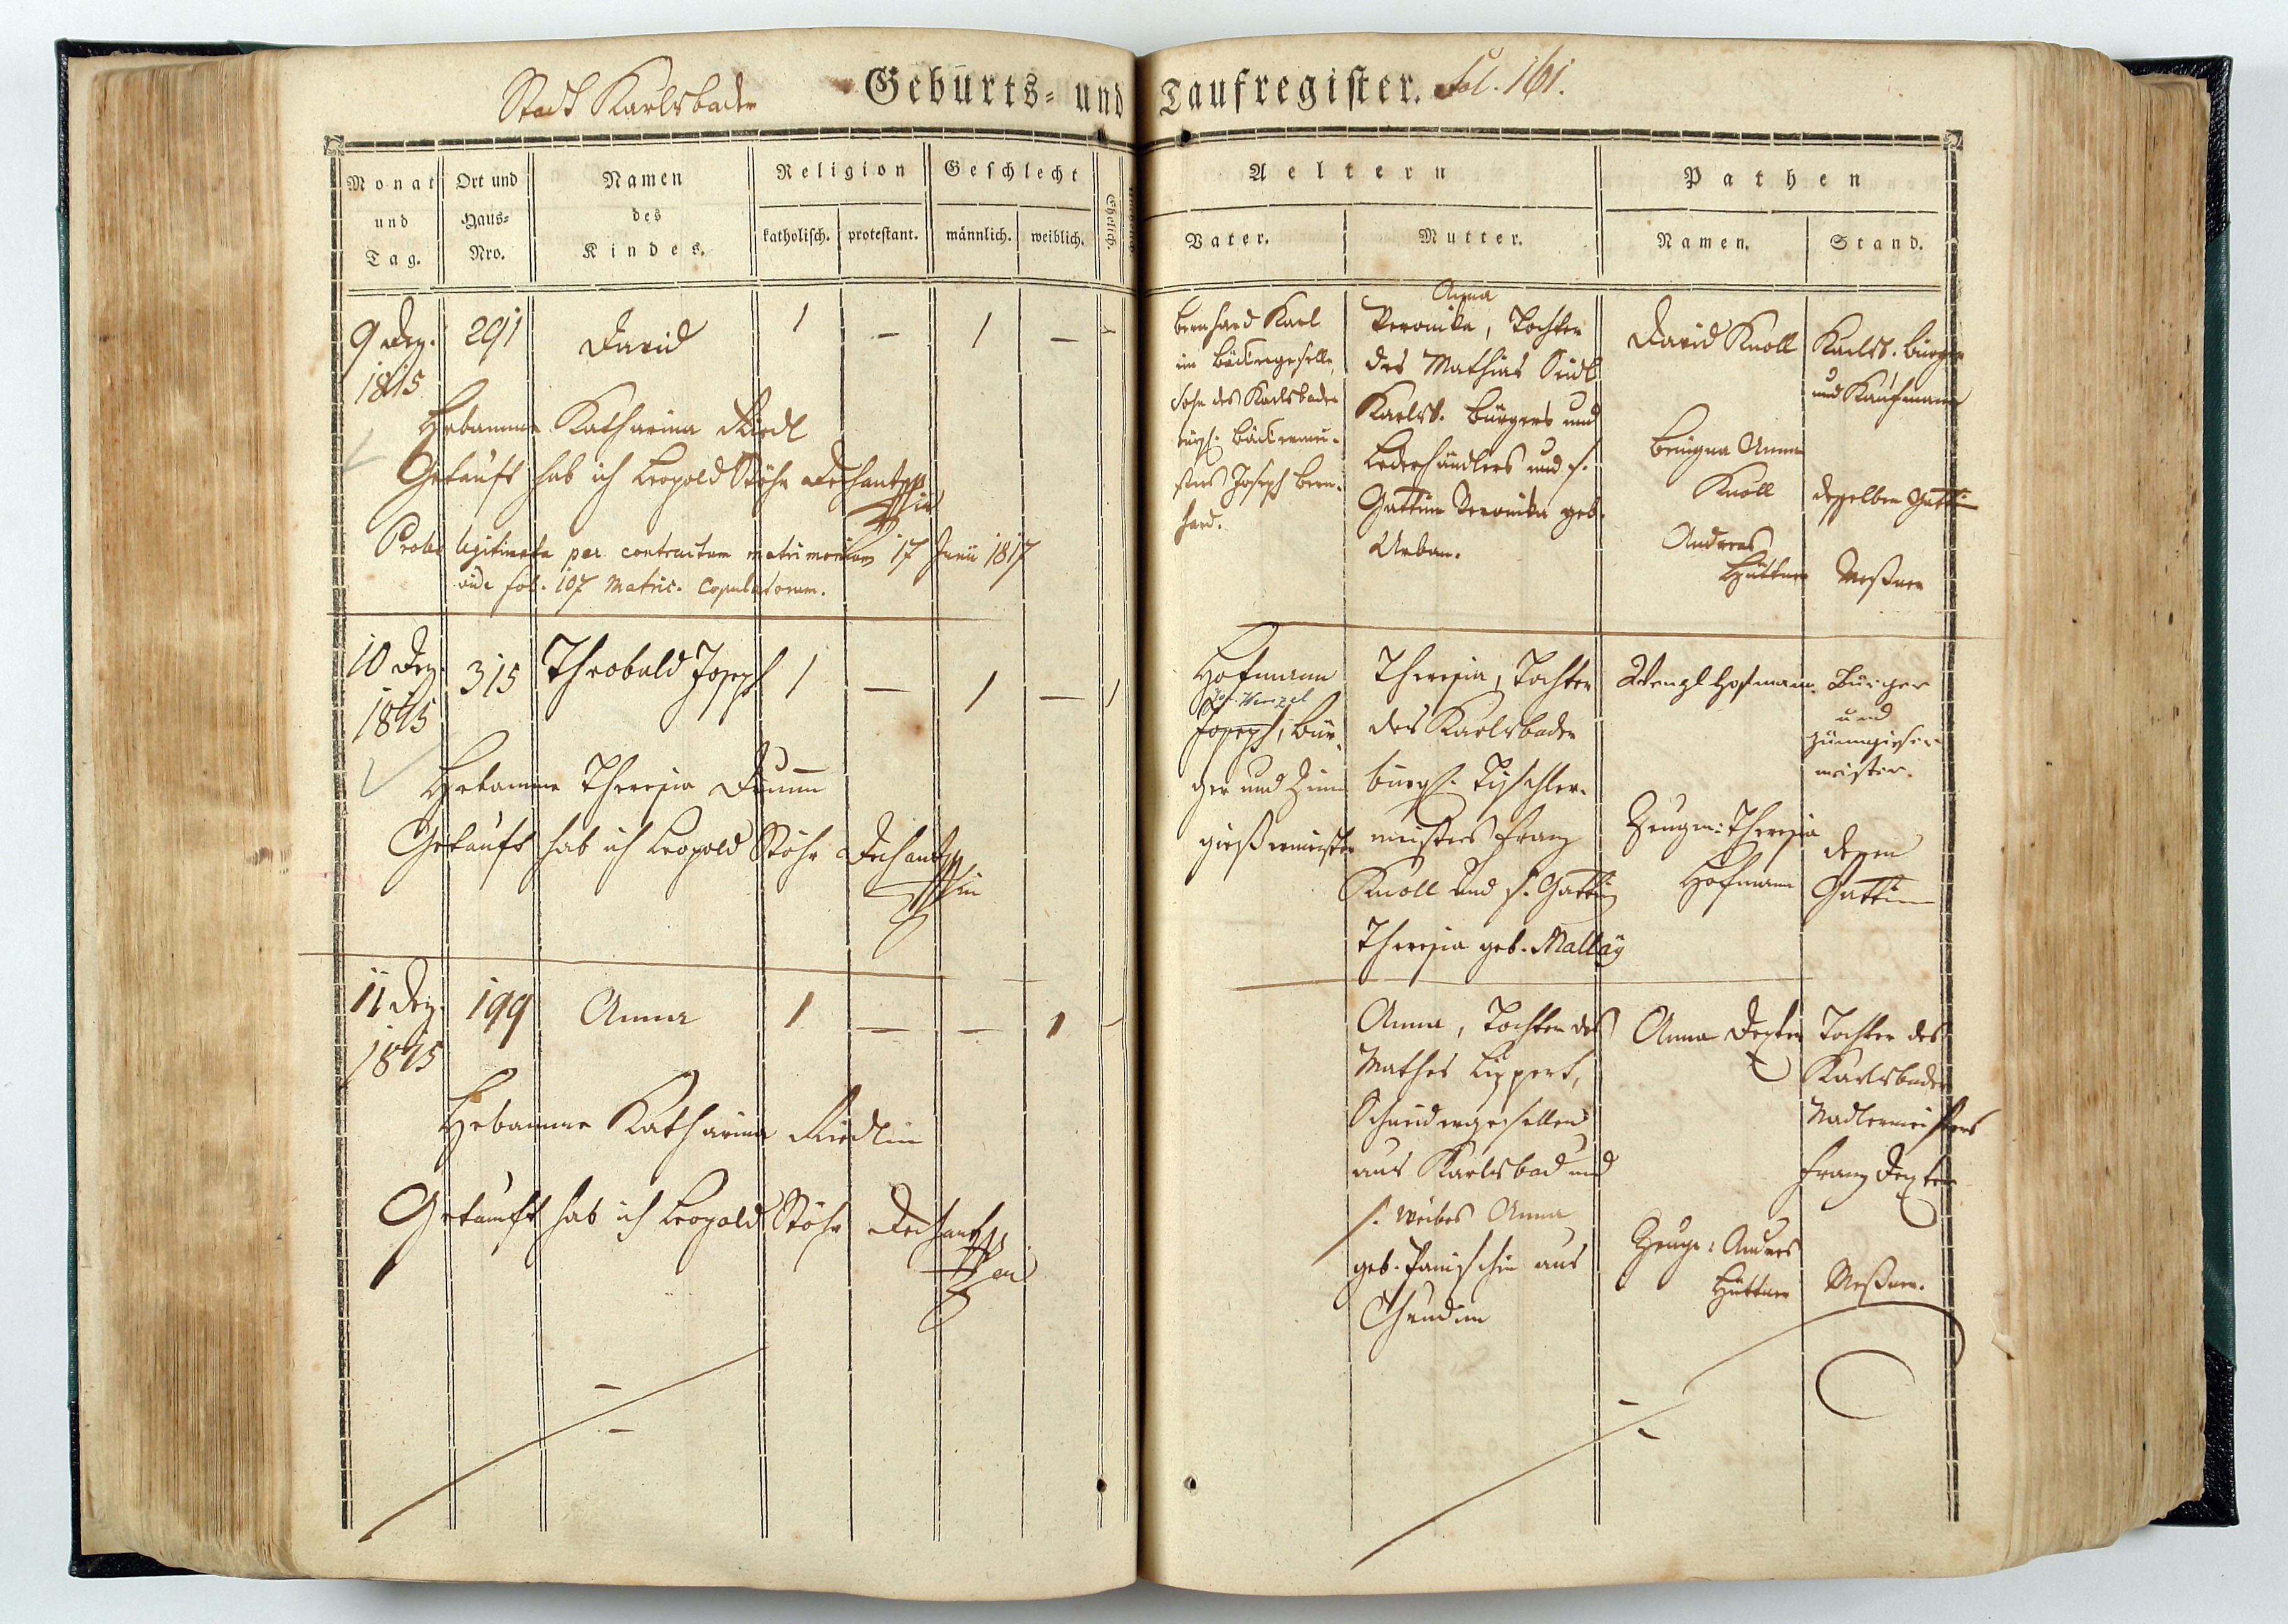 Stadt Karlsbader Geburts- und Taufregister. Fol. 161.
Monat und Tag.
Ort und Haus-Nro.
Namen des Kindes.
Religion
katholisch. protestant.
Geschlecht
männlich. weiblich.
Ehelich.
Aeltern
Vater. Mutter.
Pathen
Namen. Stand.
9 Dez. 291 David 1 — 1 —
1815
Hebamme Katharina Riedl
Getauft hab ich Leopold Stöhr Dechant
Proles legitimata per contractum matrimonium 17 Junii 1817
vide fol. 107 Matric. Copulatorum.
Bernhard Karl
ein Bäckergeselle,
Sohn des Karlsbader
bürgl. Bäckermei-
sters Joseph Bern-
hard.
Anna
Veronika, Tochter
des Mathias Seidl
Karlsb. Bürgers und
Lederhändlers und s.
Gattin Veronika geb.
Urban.
David Knoll
Benigna Anna
Knoll
Andreas
Hüttner
Karlsb. Bürger
und Kaufmann
desselben Gattin
Meßner
10 Dez. 315 Theobald Joseph 1 — 1 — 1
1815
Hebamme Theresia
Getauft hab ich Leopold Stöhr Dechant
Hofmann
Jos. Wenzel
Joseph, Bür-
ger und Zinn
gießermeister
Theresia, Tochter
des Karlsbader
bürgl. Tischler-
meisters Franz
Knoll und s. Gattin
Theresia geb. Mallay
Wenzl Hofmann
Zeugin: Theresia
Hofmann
Bürger
und
Zinngießer
meister.
dessen
Gattin
11 Dez. 199 Anna 1 — — 1 —
1815
Hebamme Katharina Riedlin
Getauft hab ich Leopold Stöhr Dechant
Anna, Tochter des
Mathes Lippert,
Schneidergesellen
aus Karlsbad und
s. Weibes Anna
geb. aus
Anna Dexter
Zeuge: Andres
Hüttner
Tochter des
Karlsbader
Nadlermeisters
Franz Dexter
Meßner.